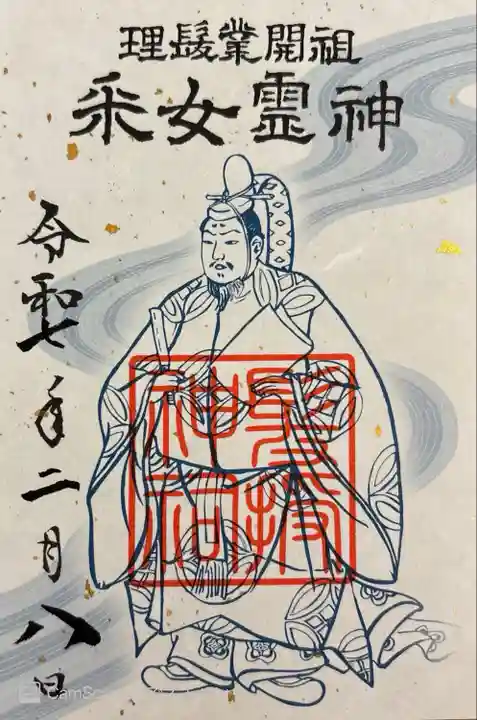 理髮業開祖
采女霊神
令和七年二月八日
御髪
神社